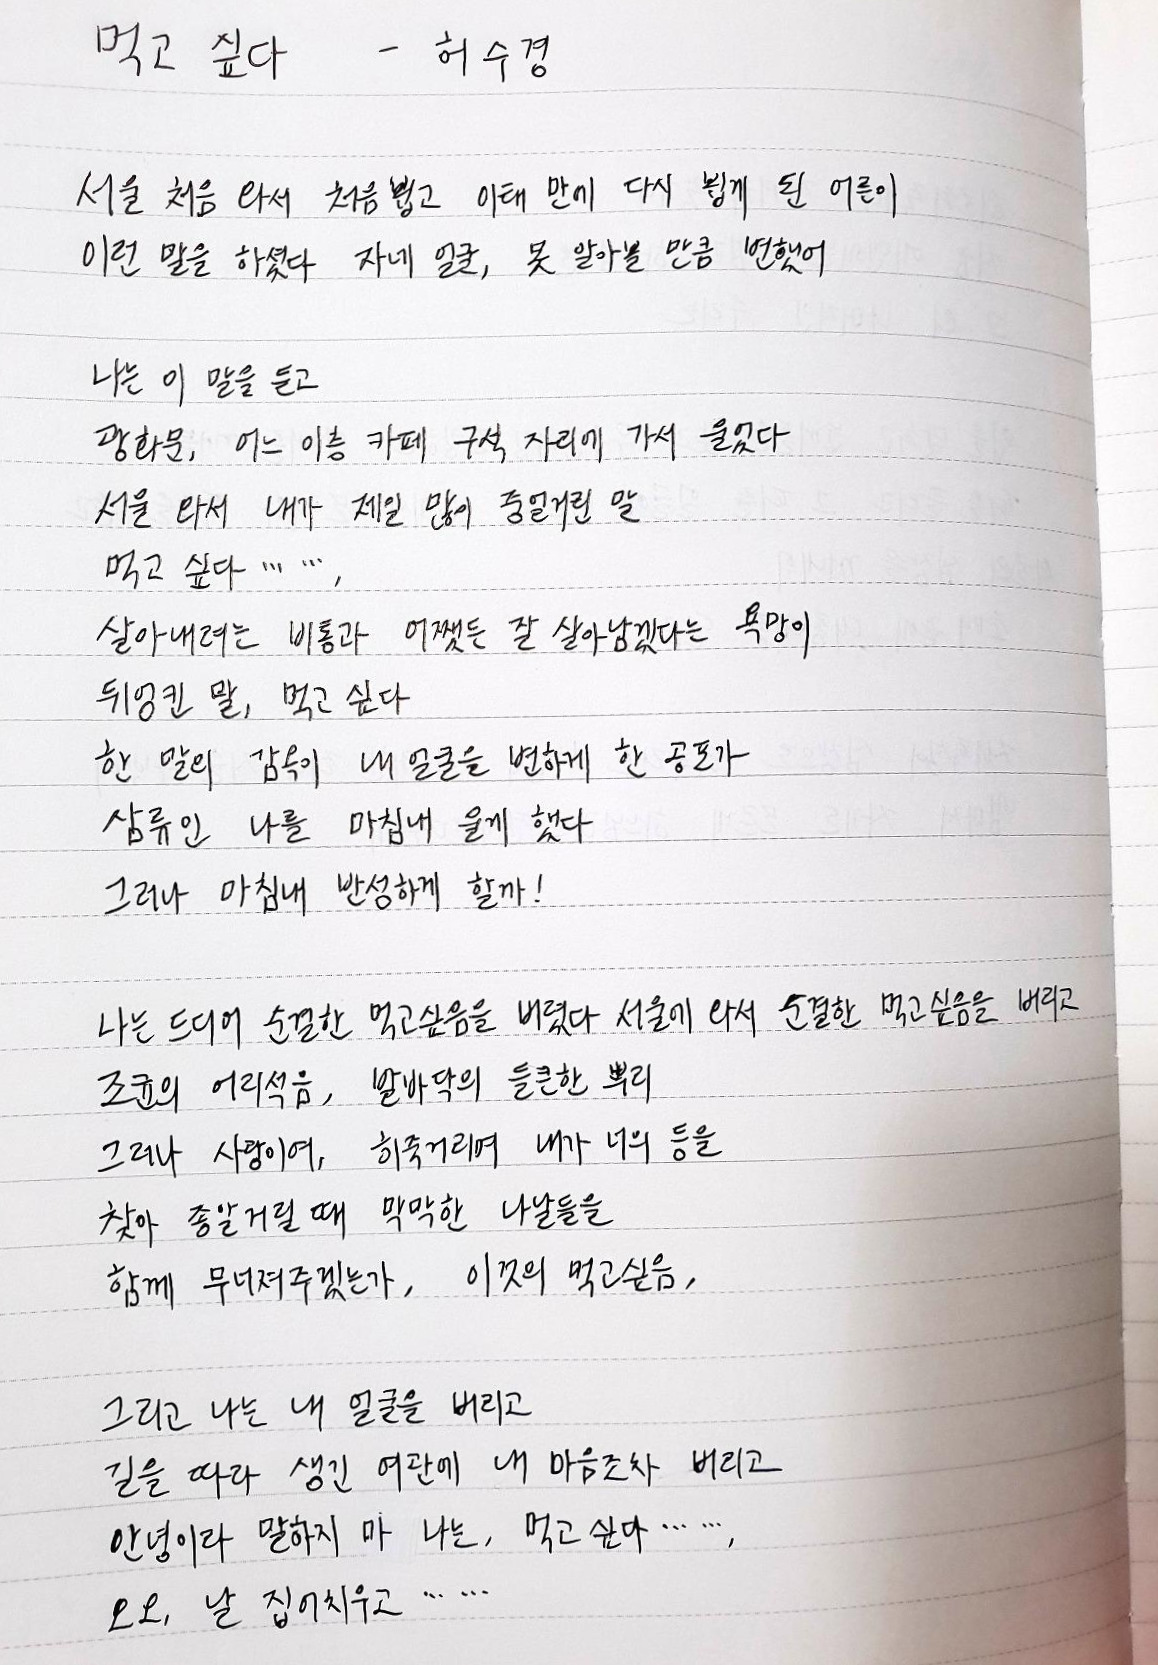 먹고 싶다 - 허수경
서울 처음 와서 처음 뵙고 이태 만에 다시 뵙게 된 어른이
이런 말을 하셨다 자네 얼굴, 못 알아볼 만큼 변했어
나는 이 말을 듣고
광화문, 어느 이층 카페 구석 자리에 가서 울었다
서울 와서 내가 제일 많이 중얼거린 말
먹고 싶다 … …,
살아내려는 비통과 어쨌든 잘 살아남겠다는 욕망이
뒤엉킨 말, 먹고 싶다
한 말의 감옥이 내 얼굴을 변하게 한 공포가
삼류인 나를 마침내 울게 했다
그러나 마침내 반성하게 할까!
나는 드디어 순결한 먹고싶음을 버렸다 서울에 와서 순결한 먹고싶음을 버리고
조균의 어리석음, 발바닥의 들큰한 뿌리
그러나 사랑이여, 히죽거리며 내가 너의 등을
찾아 종알거릴 때 막막한 나날들을
함께 무너져주겠는가, 이것의 먹고싶음,
그리고 나는 내 얼굴을 버리고
길을 따라 생긴 여관에 내 마음조차 버리고
안녕이라 말하지 마 나는, 먹고 싶다 … …,
오오, 날 집어치우고 … …